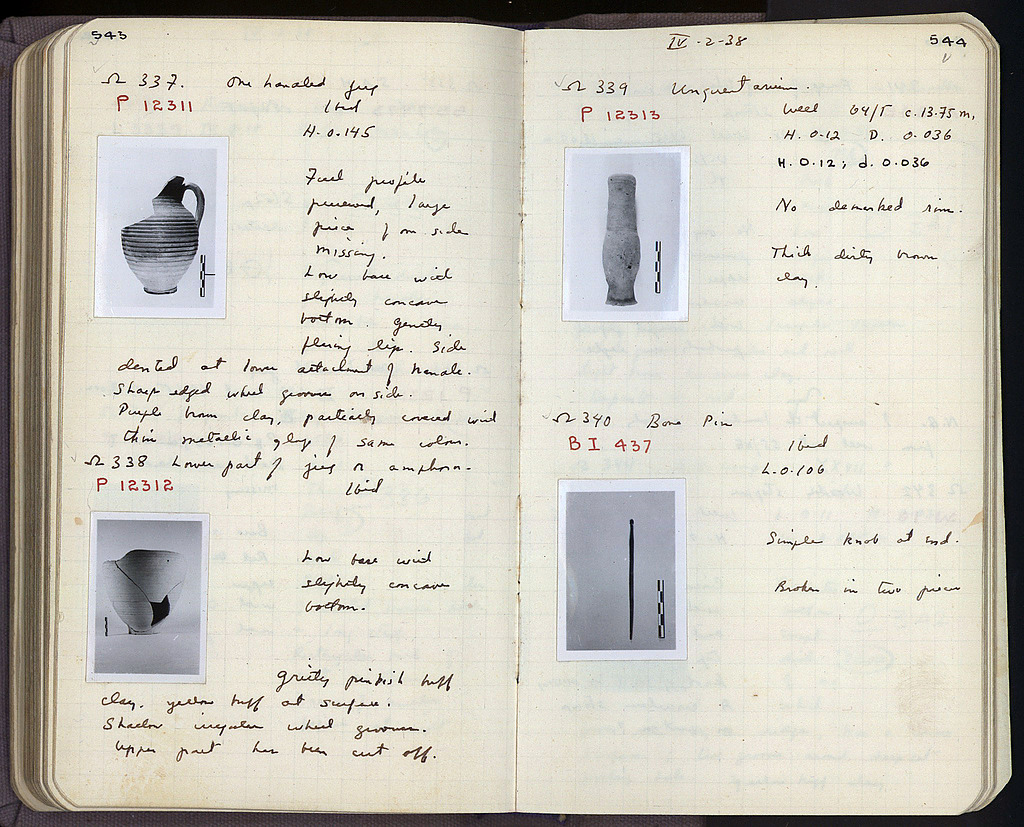 543
Ω 337. One handled jug
P 12311 Ibid
H. 0.145
Full profile
preserved, large
piece of one side
missing.
Low base with
slightly concave
bottom. Gently
flaring lip. Side
dented at lower attachment of handle.
Sharp edged wheel grooves on side.
Purple brown clay, partially covered with
thin metallic glaze of same colour.
Ω 338 Lower part of jug or amphora.
P 12312 Ibid
Low base with
slightly concave
bottom.
Gritty pinkish buff
clay, yellow buff at surface.
Shallow irregular wheel grooves.
Upper part has been cut off.
IV-2-38
544
Ω 339 Unguentarium.
P 12313 Well 64/Γ c. 13.75 m,
H. 0.12 D. 0.036
H. 0.12; d. 0.036
No demarked rim.
Thick dirty brown
clay.
Ω 340 Bone Pin
BI 437 Ibid
L. 0.106
Simple knob at end.
Broken in two pieces